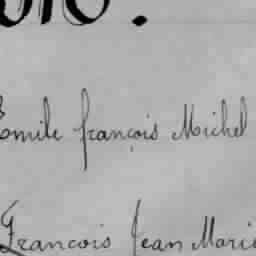 Emile françois Michel
François Jean Marie